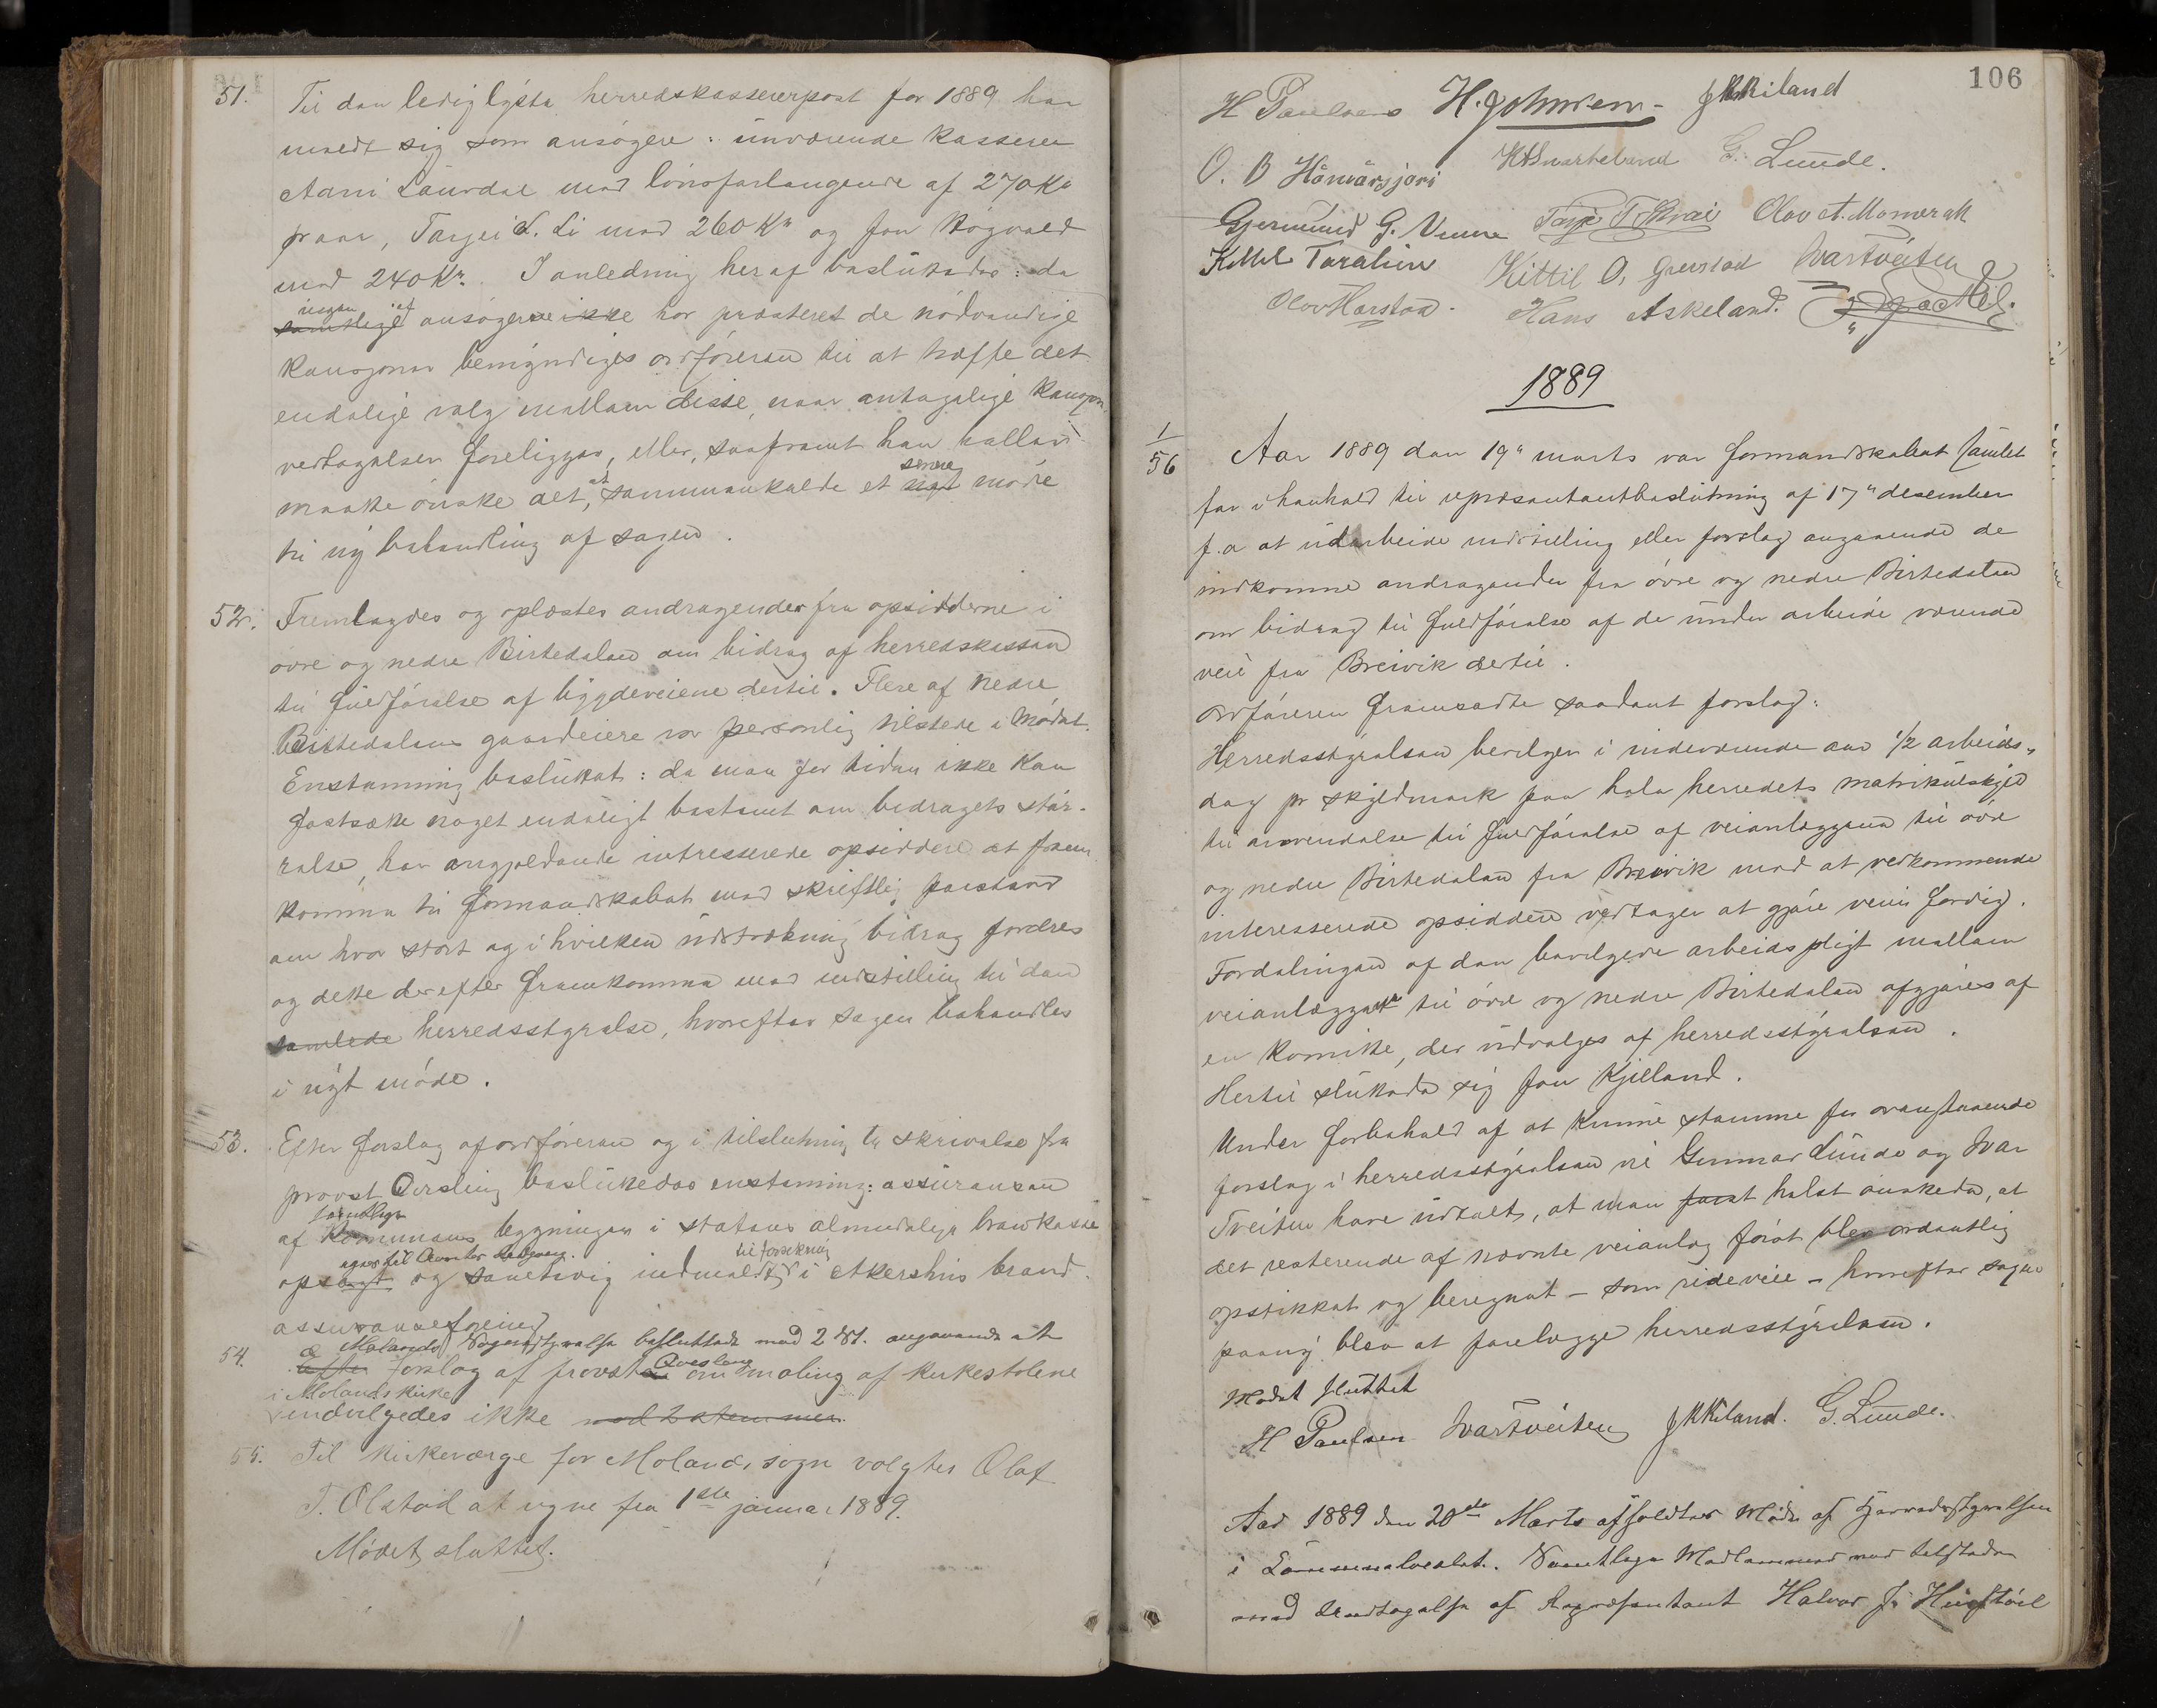 51. Til den ledig lyste herredskassererpost for 1889 har
meldt sig som ansøgere: nuværende kasserer
Aani Laurdal med lønsforlangende af 270 Kr
pr aar, Tarjei L. Li med 260 Kr og Jon Rogvald
med 240 Kr. I anledning heraf besluttedes: da
ingen af
samtlige ansøgerne ikke har præsteret de nødvendige
kausjoner bemyndiges ordføreren til at træffe det
endelige valg mellem disse, naar antagelige kausjons
vertagelser foreligger, eller, saafremt han heller
senere
maatte ønske det, at sammenkalde et nyt møde
til ny behandling af sagen.
52. Fremlagdes og oplæstes andragender fra opsidderne i
øvre og nedre Birtedalen om bidrag af herredskassen
til fuldførelse af bygdeveiene dertil. Flere af nedre
Birtedalens gaardeiere var personlig tilstede i mødet.
Enstemmig besluttet: da man for tiden ikke kan
fastsætte noget endeligt bestemt om bidragets stør-
relse, har angjeldende interesserede opsiddere at frem
komme til formandskabet med skriftlig paastand
om hvor stort og i hvilken udstrækning bidrag fordres
og dette derefter fremkomme med indstilling til den
samlede herredsstyrelse, hvorefter sagen behandles
i nyt møde.
53. Efter forslag af ordføreren og i tilslutning til skrivelse fra
provst Qvesling besluttedes enstemmig: assuransen
samtlige
af kommunens bygninger i statens almindelige brandkasse
opsagt og samtidig indmeldt i Akershus brand-
til forsikring
assuranseforening
54. Molands Sognestyrelse besluttede med 2 St. angaaende at
efter forslag af provst Qvesling om maling af kirkestolene
i Molands kirke
indvilgedes ikke med 2 stemmer.
55. Til kirkeværge for Molands sogn valgtes Olaf
T. Olstad at regne fra 1ste januar 1889.
Mødet sluttet.
106
H Paulsen H. Johnsen J K Kiland
O. B Hånvårsjori H H Svartelund G. Lunde.
Gjermund G. Venne Tarje T Skrai Olav A. Momrak
Kittel Taraldlien Kittil O, Græstad Ivar Tveiten
Olov Harstad. Hans Askeland.
1889
1/56 Aar 1889 den 19de marts var formandskabet samlet
for i henhold til representantbeslutning af 17de desember
f. a at udarbeide indstilling eller forslag angaaende de
indkomne andragender fra øvre og nedre Birtedalen
om bidrag til fuldførelse af de under arbeide værende
veie fra Breivik dertil.
Ordføreren fremsatte saadant forslag:
Herredsstyrelsen bevilger i indeværende aar 1/2 arbeids-
dag pr skyldmark paa hele herredets matrikulskyld
til anvendelse til fuldførelse af veianlæggene til øvre
og nedre Birtedalen fra Breivik mod at vedkommende
interesserede opsiddere vedtager at gjøre veien færdig.
Fordelingen af den bevilgede arbeidspligt mellem
veianlæggene til øvre og nedre Birtedalen afgjøres af
en komite, der udvælges af herredsstyrelsen.
Hertil sluttede sig Jon Kjilland.
Under forbehold af at kunne stemme for ovenstaaende
forslag i herredsstyrelsen vil Gunnar Lunde og Ivar
Tveiten have udtalt, at man først helst ønskede, at
det resterende af nævnte veianlæg først blev ordentlig
opstikket og beregnet – som rideveie – hvorefter sagen
paany blev at forelægge herredsstyrelsen.
Mødet sluttet
H Paulsen Ivar Tveiten J K Kiland. G. Lunde.
Aar 1889 den 20de Marts afholdtes Møde af Herredsstyrelsen
i Kommunelocalet. Samtlige Medlemmer var tilstede
med Undtagelse af Repræsentant Halvor J. Huvstöil